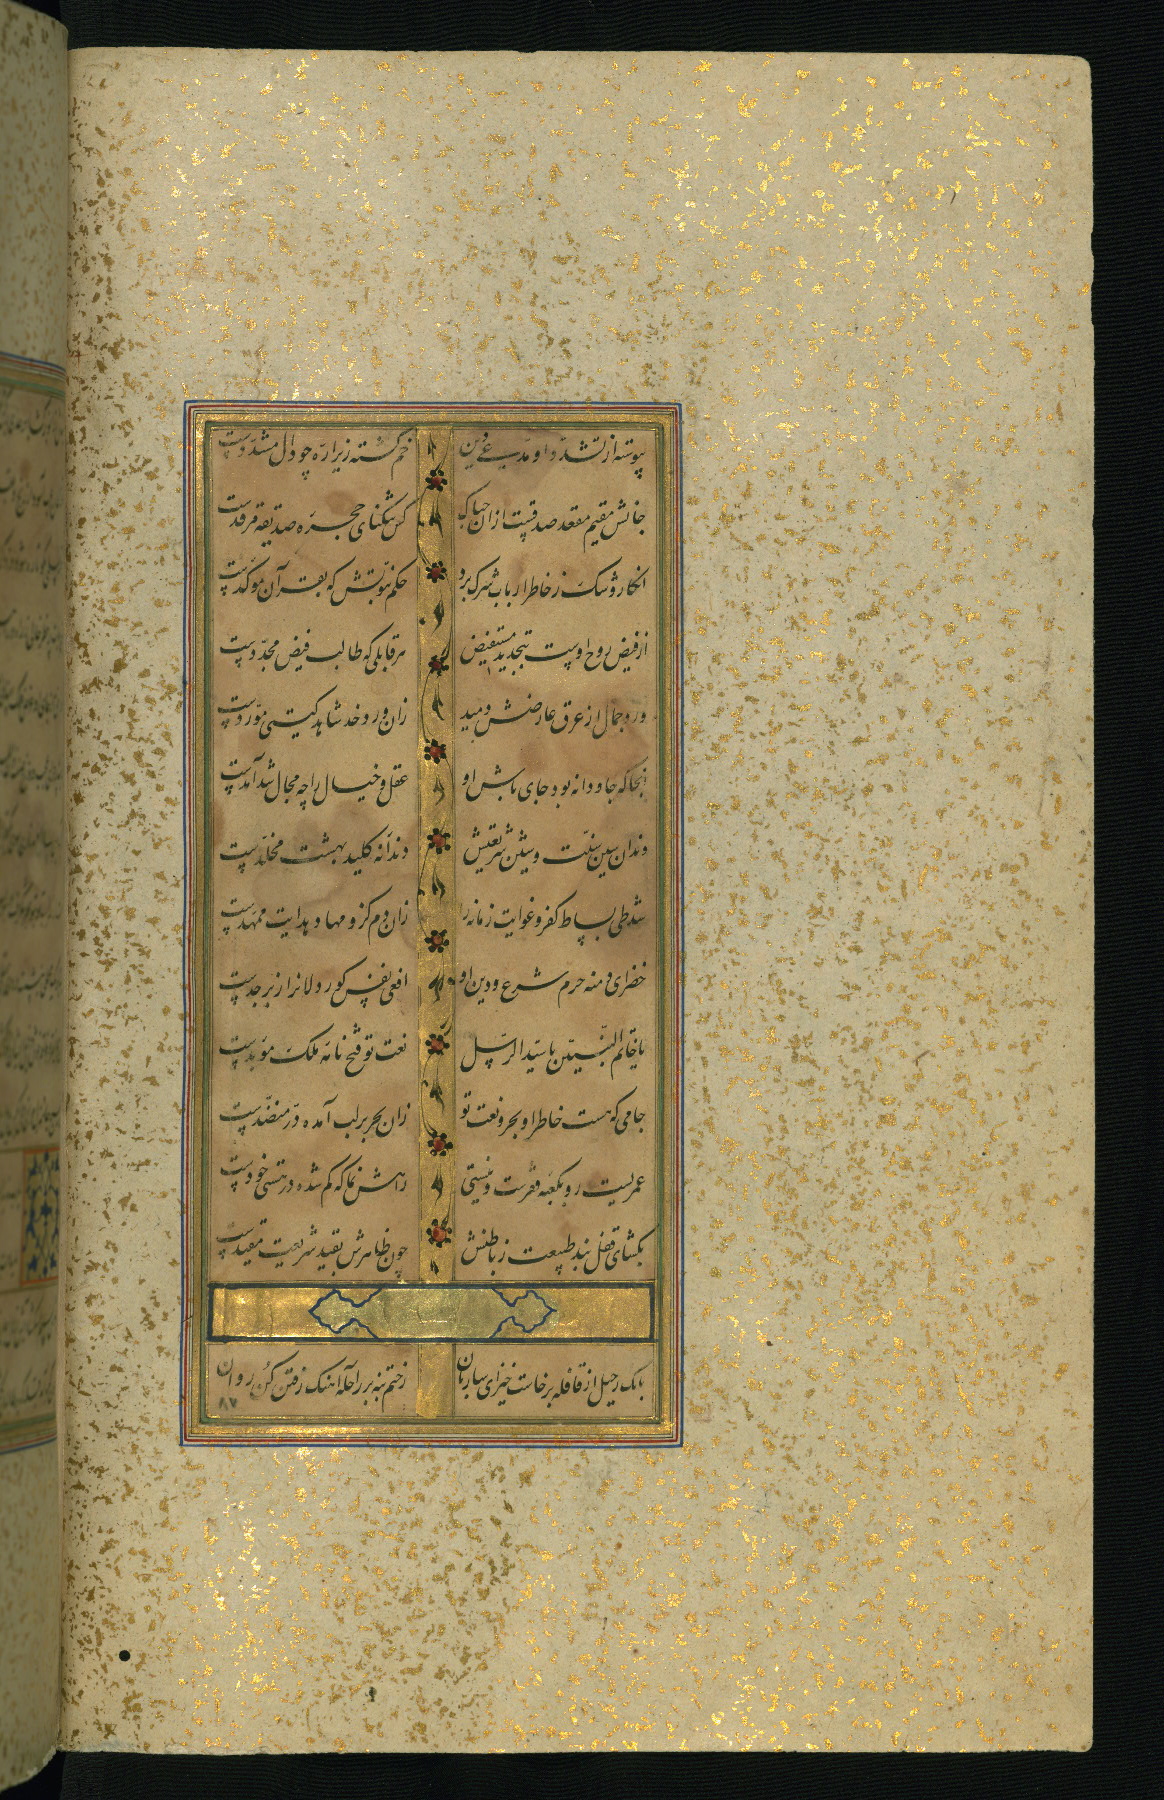 پیوسته از تشدد او مدعی دین خم گشته زیر اره چو دال مشددست
جانش مقیم مقعد صدقست ازان چه باک کش تنگنای حجره صدیقه مرقدست
انکار و شک ز خاطر ارباب شرک برد حکم نبوتش که بقرآن موکدست
از فیض روح اوست بتجدید مستفیض هر قابلی که طالب فیض مجددست
ورد جمال از عرق عارضش دمید زان ورد خد شاهد گیتی موردست
آنجا که جاودانه بود جای باش او عقل و خیال را چه مجال شد آمدست
دندان سین سنت و شین شریعتش دندانه کلید بهشت مخلدست
شد طی بساط کفر و غوایت زمانه را زان دم کزو مهاد هدایت ممهدست
خضرای دمنه حرم شرع و دین او افعی نفس کوردلان را زبرجدست
یا خاتم النبیین یا سید الرسل نعت تو فتح نامه ملک موبدست
جامی که هست خاطر او بحر و نعت تو زان بحر بر لب آمده در منضدست
عمریست رو بکعبه فقرست و نیستی راهش نما که گم شده در هستی خودست
بگشای قفل بند طبیعت ز باطنش چون ظاهرش بقید شریعت مقیدست
بانگ رحیل از قافله برخاست خیز ای ساربان رختم بنه بر راحله آهنگ رفتن کن روان
۸۷